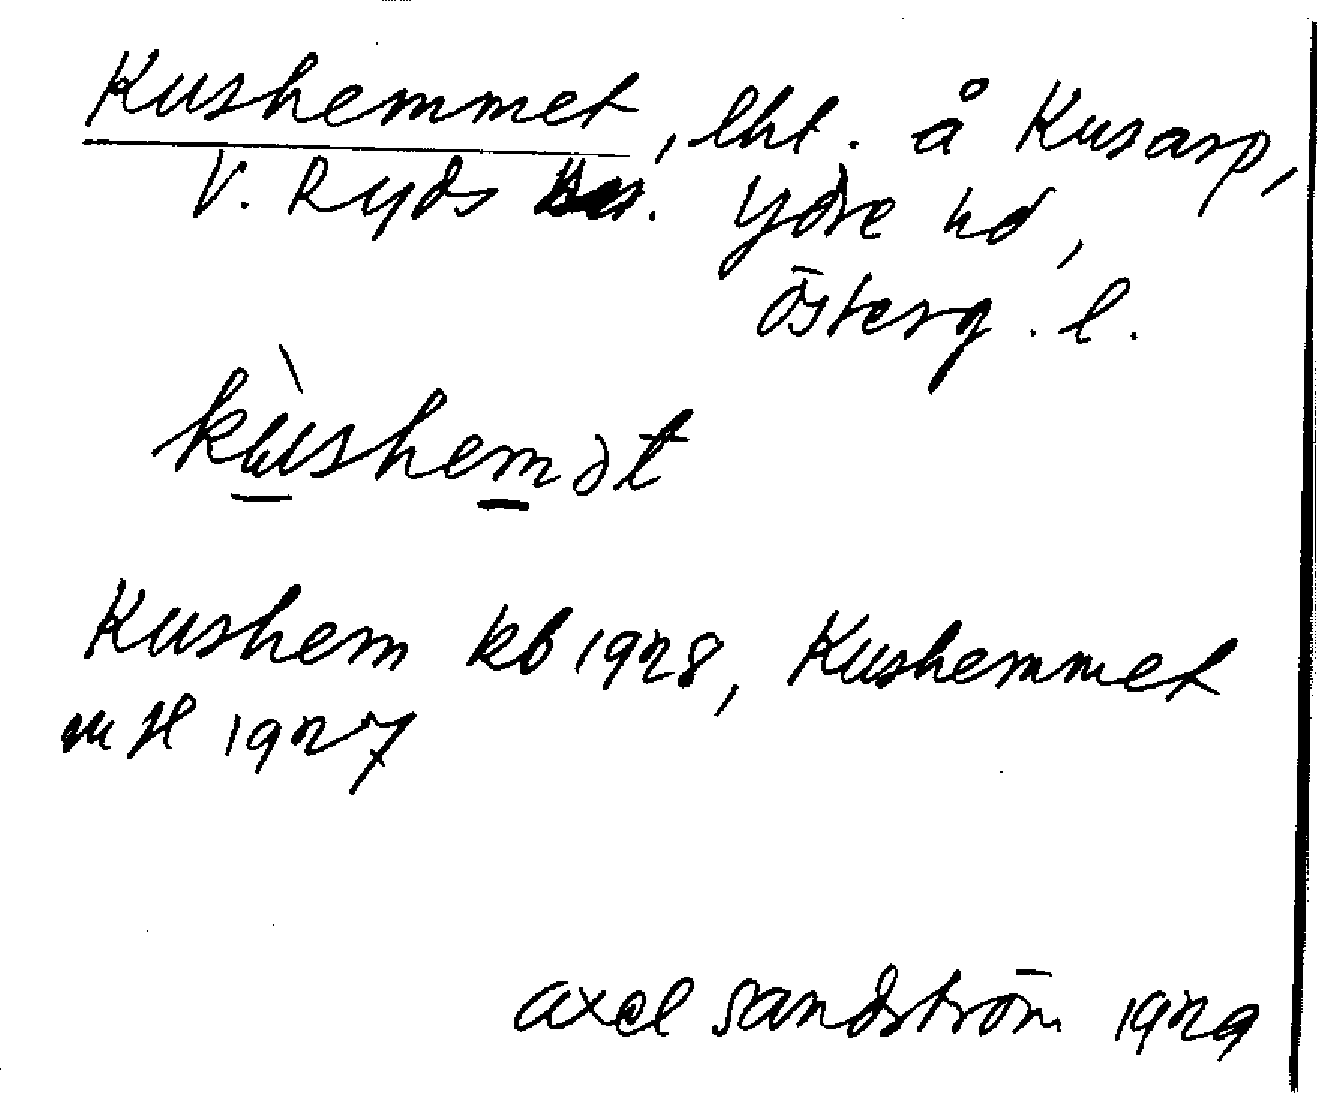 Kushemmet, lht. å Kusarp,
V. Ryds sn. Ydre hd,
Österg. l.
kùshemət
Kushem kb 1928, Kushemmet
m H 1927
Axel Sandström 1929